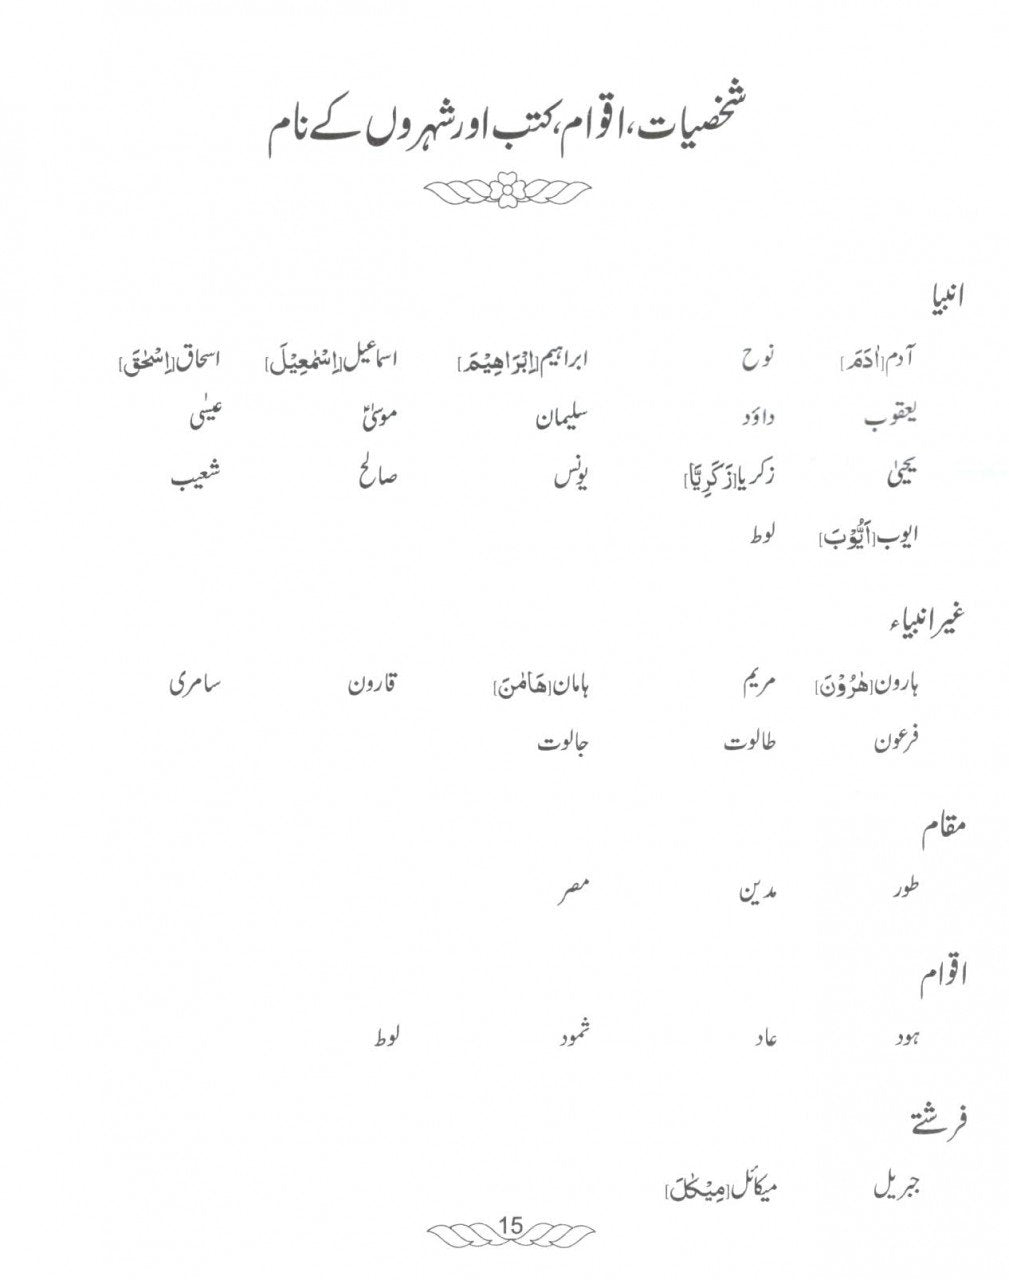 شخصیات، اقوام، کتب اور شہروں کے نام
انبیا
آدم [اٰدَمَ] نوح ابراہیم [اِبْرَاهِيْمَ] اسماعیل [اِسْمٰعِيْلَ] اسحاق [اِسْحٰقَ]
یعقوب داؤد سلیمان موسیٰ عیسٰی
یحییٰ زکریا [زَكَرِيَّا] یونس صالح شعیب
ایوب [اَيُّوْبَ] لوط
غیر انبیاء
ہارون [هٰرُوْنَ] مریم ہامان [هَامٰنَ] قارون سامری
فرعون طالوت جالوت
مقام
طور مدین مصر
اقوام
ہود عاد ثمود لوط
فرشتے
جبریل میکائل [مِيْكٰلَ]
15